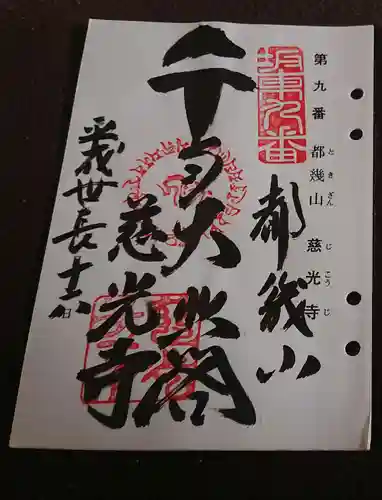 第九番 都幾山 慈光寺
と き さん じ こう じ
坂東九番
都幾山
千手大悲閣
慈光寺